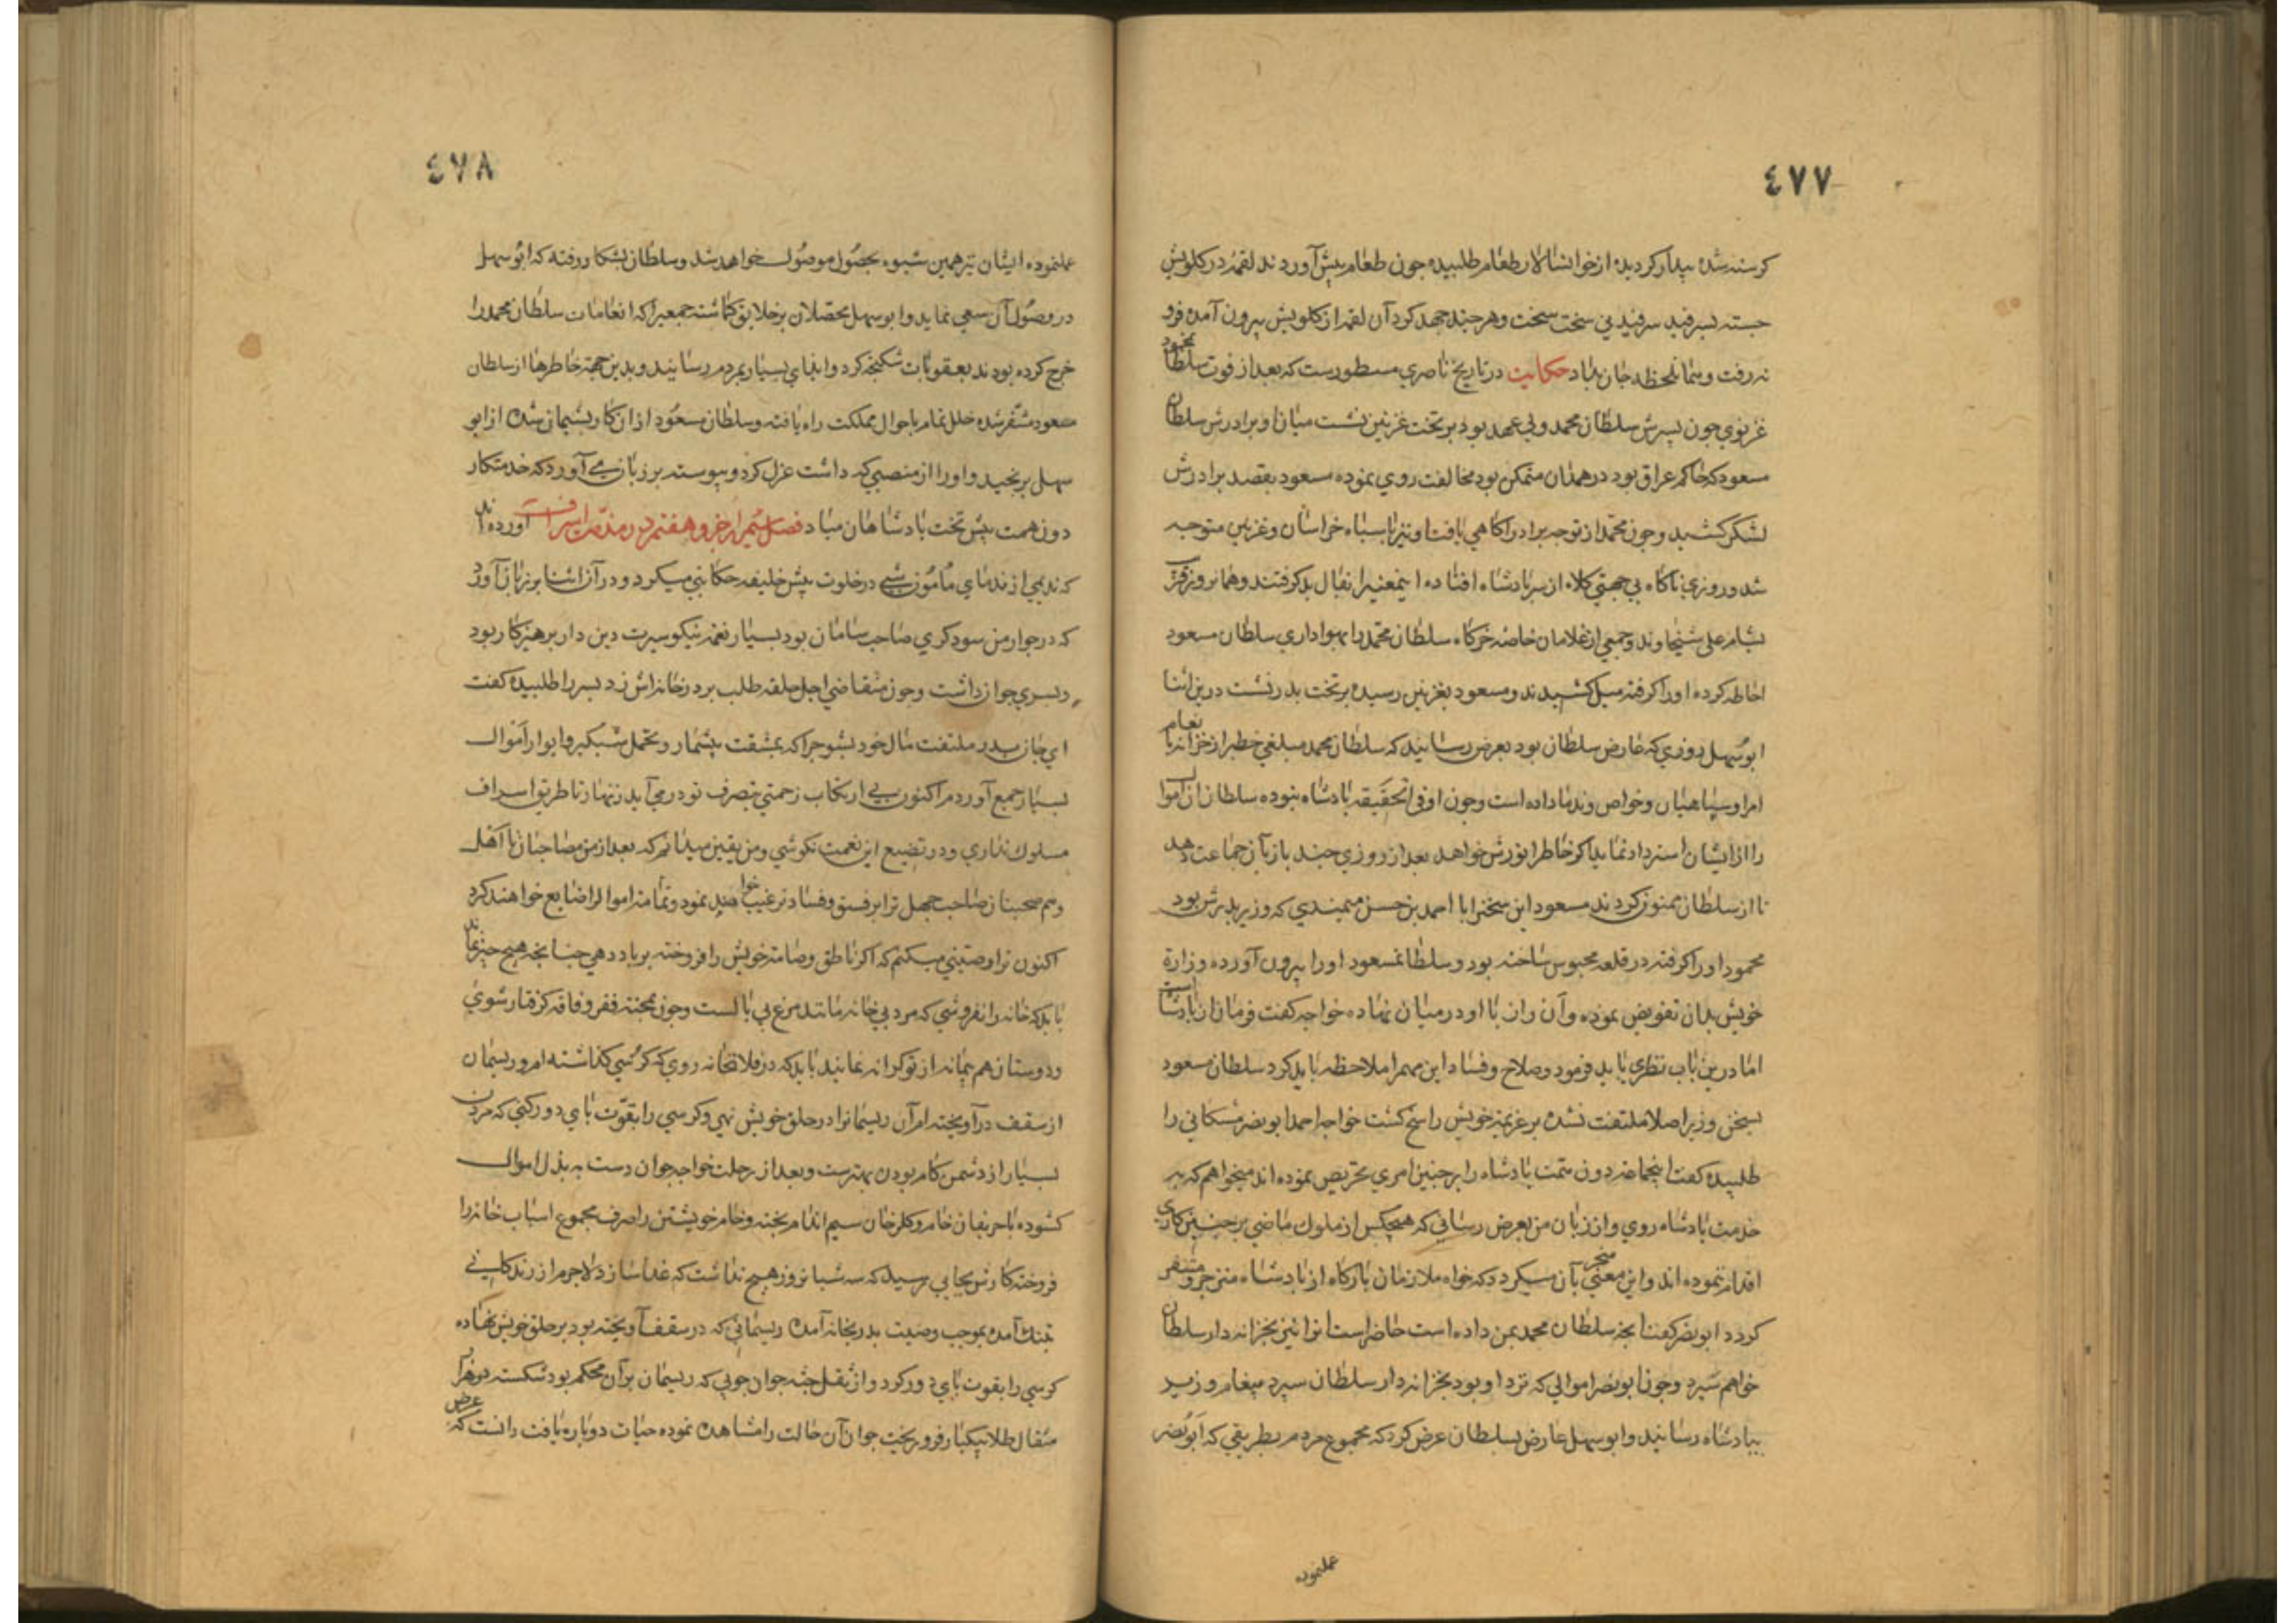 ٤٧٧
كرسنه شده بيدار كرديده از خوانسالار طعام طلبيده جون طعام بيش آوردند لقمۀ در كلويش
جسته بسرفيد سرفيدني سخت سخت و هر جند جهد كرد آن لقمه از كلويش بيرون آمده فرو
نه رفت و بهمان لحظه جان بداد حكايت در تاريخ ناصري مسطورست كه بعد از فوت سلطان محمود
غزنوي جون بسرش سلطان محمد ولي عهد بود بر تخت غزنين نشست ميان او و برادرش سلطان
مسعود كه حاكم عراق بود در همدان متمكن بود مخالفت روي نموده مسعود بقصد برادرش
لشكر كشيد و جون محمد از توجه برادر آكاهي يافت او نيز با سباه خراسان و غزنين متوجه
شد و روزي ناكاه بي جهتي كلاه از سر بادشاه افتاده اينمعنيرا بفال بد كرفتند و همان روز
بشام على و جمعي از غلامان خاصه خركاه سلطان محمد را بهواداري سلطان مسعود
احاطه كرده او را كرفته ميل كشيدند و مسعود بغزنين رسيده بر تخت بدر نشست درين اثنا
ابو سهل زوزني كه عارض سلطان بود بعرض رسانيد كه سلطان محمد مبلغي خطير از خزانه بانعام
امرا و سپاهيان و خواص و ندما داده است و جون او في الحقيقه بادشاه نبوده سلطان آن اموال
را از ايشان استرداد نمايد اكر خاطر انورش خواهد بعد از روزي جند باز بآن جماعت دهد
تا از سلطان ممنون كردند مسعود اين سخنرا با احمد بن حسن ميمندي كه وزير بدرش بود
محمود او را كرفته در قلعه محبوس ساخته بود و سلطانمسعود او را بيرون آورده وزارة
خويش بدان تفويض نموده و آن راز با او در ميان نهاده خواجه كفت فرمان از بادشاست
اما درين باب نظري بايد فرمود و صلاح و فساد اين مهمرا ملاحظه بايد كرد سلطان مسعود
بسخن وزير اصلا ملتفت نشده بر عزيمه خويش راسخ كشت خواجه احمد ابو نصر مشكاني را
طلبيده كفت اينجماعه دون همت بادشاه را بر جنين امري تحريص نموده اند ميخواهم كه به
خدمت بادشاه روي و از زبان من بعرض رساني كه هيچكس از ملوك ماضي بر جنين كاري
اقدام ننموده اند و اين معني منجر بآن ميكردد كه خواه ملازمان باركاه از بادشاه منزجر و متنفر
كردد ابو نصر كفت آنجه سلطان محمد بمن داده است حاضر است آنرا نيز بخزانه دار سلطان
خواهم سپرد و جون ابو نصر اموالي كه نزد او بود بخزانه دار سلطان سپرد پيغام وزير
ببادشاه رسانيد و ابو سهل عارض بسلطان عرض كرد كه مجموع مردم بطريقي كه ابو نصر
عملنموده
٤٧٨
عملنموده ايشان نيز همين شيوه بحصول موصول خواهد شد و سلطان بشكار رفته كه ابو سهل
در وصول آن سعي نمايد و ابو سهل محصلان بر خلايق كماشته جمعيرا كه انعامات سلطان محمد را
خرج كرده بودند بعقوبات شكنجه كرد و ايذاي بسيار بمردم رسانيد و بدين جهة خاطرها از سلطان
مسعود متنفر شده خلل تمام باحوال مملكت راه يافته و سلطان مسعود از ان كار بشيمان شده از ابو
سهل برنجيد و او را از منصبي كه داشت عزل كرد و بيوسته بر زبان مي آورد كه خدمتكار
دون همت بيش تخت بادشاهان مباد فصل شيرازجز و هفتم در مذمت اسراف آورده اند
كه نديمي از ندماي مأمون شبي در خلوت بيش خليفه حكايتي ميكرد و در آن اثنا بر زبان آورد
كه در جوار من سودكري صاحب سامان بود بسيار نعمة نيكو سيرت دين دار برهيزكار بود
و بسري جوان داشت و جون متقاضي اجل حلقه طلب بر در خانه اش زد بسر را طلبيده كفت
اي جان بدر ملتفت مال خود بشو جرا كه بمشقت بيشمار و تحمل شبكير و ايوار اموال
بسيار جمع آوردم اكنون بي ارتكاب زحمتي بتصرف تو در مي آيد زنهار تا طريق اسراف
مسلوك نداري و در تضييع اين نعمت نكوشي و من يقين ميدانم كه بعد از من مصاحبان نا اهل
و هم صحبتان صاحب جهل ترا بر فسق و فساد ترغيب خواهند نمود و تمامة اموال را ضايع خواهند كرد
اكنون ترا وصيتي ميكنم كه اكر ناطق و صامته خويش را فروخته بر باد دهي جنانجه هيج جيز نماند
بايد كه خانه را نفروشي كه مرد بي خانه مانند مرغ بي بالست و جون بمحنة فقر و فاقه كرفتار شوي
و دوستان هم پيمانه از تو كرانه نمايند بايد كه در فلان خانه روي كه كرسي كذاشته ام و ريسمان
از سقف در آويخته ام آن ريسمانرا در حلق خويش نهي و كرسي را بقوت باي دور كني كه مردن
بسيار از دشمن كام بودن بهترست و بعد از رحلت خواجه جوان دست به بذل اموال
كشوده با حريفان خام و كلرخان سيم اندام بخته و خام خويشتن را صرف مجموع اسباب خانه را
فروخته كارش بجايي رسيد كه سه شبانروز هيج نداشت كه غدا سازد لاجرم از زندكاني
بتنك آمده بموجب وصيت بدر بخانه آمده ريسماني كه در سقف آويخته بود بر حلق خويش نهاده
كرسي را بقوت باي دور كرد و از ثقل جثه جوان جوبي كه ريسمان بر آن محكم بود شكسته دو هزار
مثقال طلا بيكبار فرو ريخت جوان آن حالت را مشاهده نموده حيات دوباره يافت دانست كه غرض